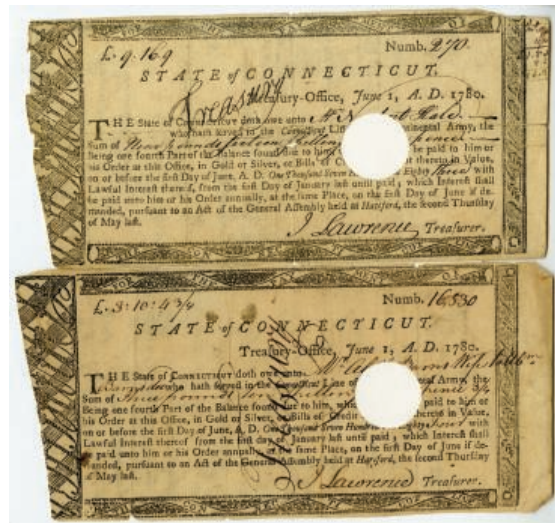 FOR THE PAYMENT OF
£. 9. 16. 9
Numb. 270.
STATE of CONNECTICUT.
Treasury-Office, June 1, A. D. 1780.
THE State of CONNECTICUT doth owe unto Mr
who hath served in the Connecticut Army, the
Sum of Nine pounds sixteen
Being one fourth Part of the Balance found due to him be paid to him or
his Order at this Office, in Gold or Silver, or Bills of thereto in Value,
on or before the first Day of June, A. D. One Thousand Seven Eighty Three with
Lawful Interest thereof, from the first Day of January last until paid; which Interest shall
be paid unto him or his Order annually, at the same Place, on the first Day of June if de-
manded, pursuant to an Act of the General Assembly held at Hartford, the second Thursday
of May last.
J Lawrence Treasurer.
FOR THE PAYMENT OF
£. 3: 10: 4 3/4
Numb. 16530
STATE of CONNECTICUT.
Treasury-Office, June 1, A. D. 1780.
THE State of CONNECTICUT doth owe unto Mr
who hath served in the Connecticut Line of Army, the
Sum of Three pounds ten
Being one fourth Part of the Balance found due to him, be paid to him or
his Order at this Office, in Gold or Silver, or Bills of Credit thereto in Value,
on or before the first Day of June, A. D. One Thousand Seven Hundred Eighty Four with
Lawful Interest thereof from the first day of January last until paid; which Interest shall
be paid unto him or his Order annually, at the same Place, on the first Day of June if de-
manded, pursuant to an Act of the General Assembly held at Hartford, the second Thursday
of May last.
J Lawrence Treasurer.